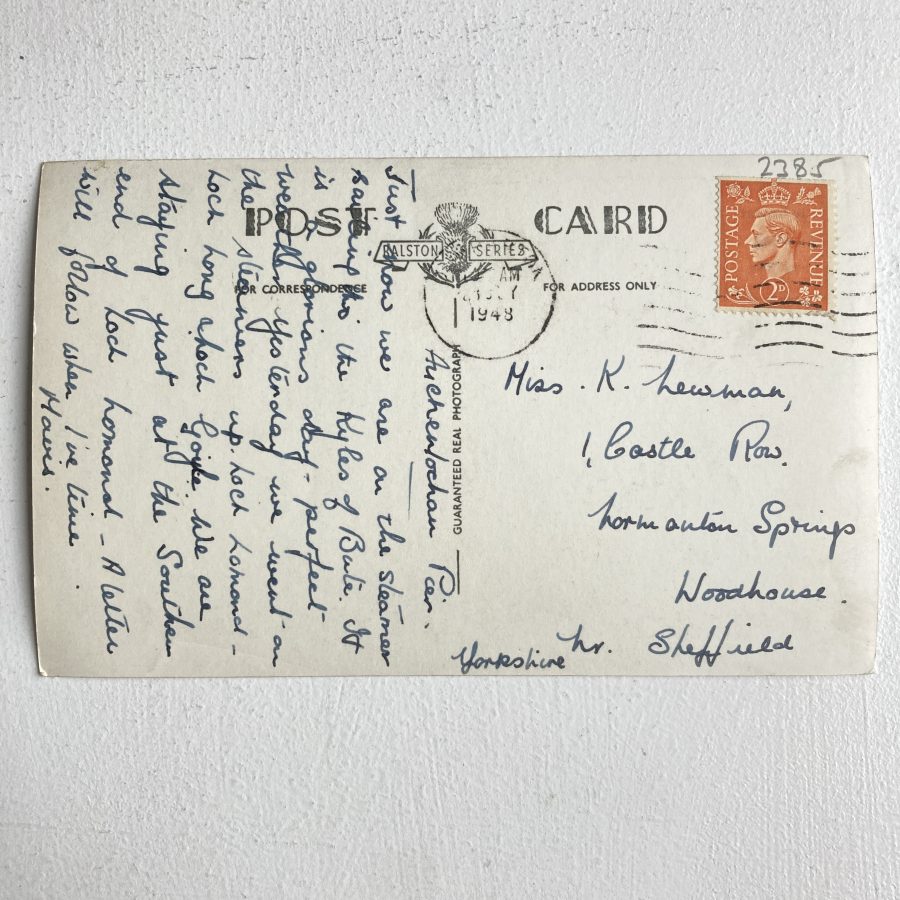 2385
POSTAGE REVENUE
2D
POST CARD
RALSTON SERIES
FOR CORRESPONDENCE
FOR ADDRESS ONLY
AM
1948
GUARANTEED REAL PHOTOGRAPH
Auchenlochan Pier.
Just now we are on the steamer
sailing the Kyles of Bute. It
is a glorious day - perfect
weather. Yesterday we went on
the steamers up Loch Lomond -
Loch Long & Loch Goyle. We are
staying just at the Southern
end of Loch Lomond - A letter
will follow when I've time
Mavis.
Miss. K. Newman,
1, Castle Row.
Normanton Springs
Woodhouse.
Nr. Sheffield
Yorkshire